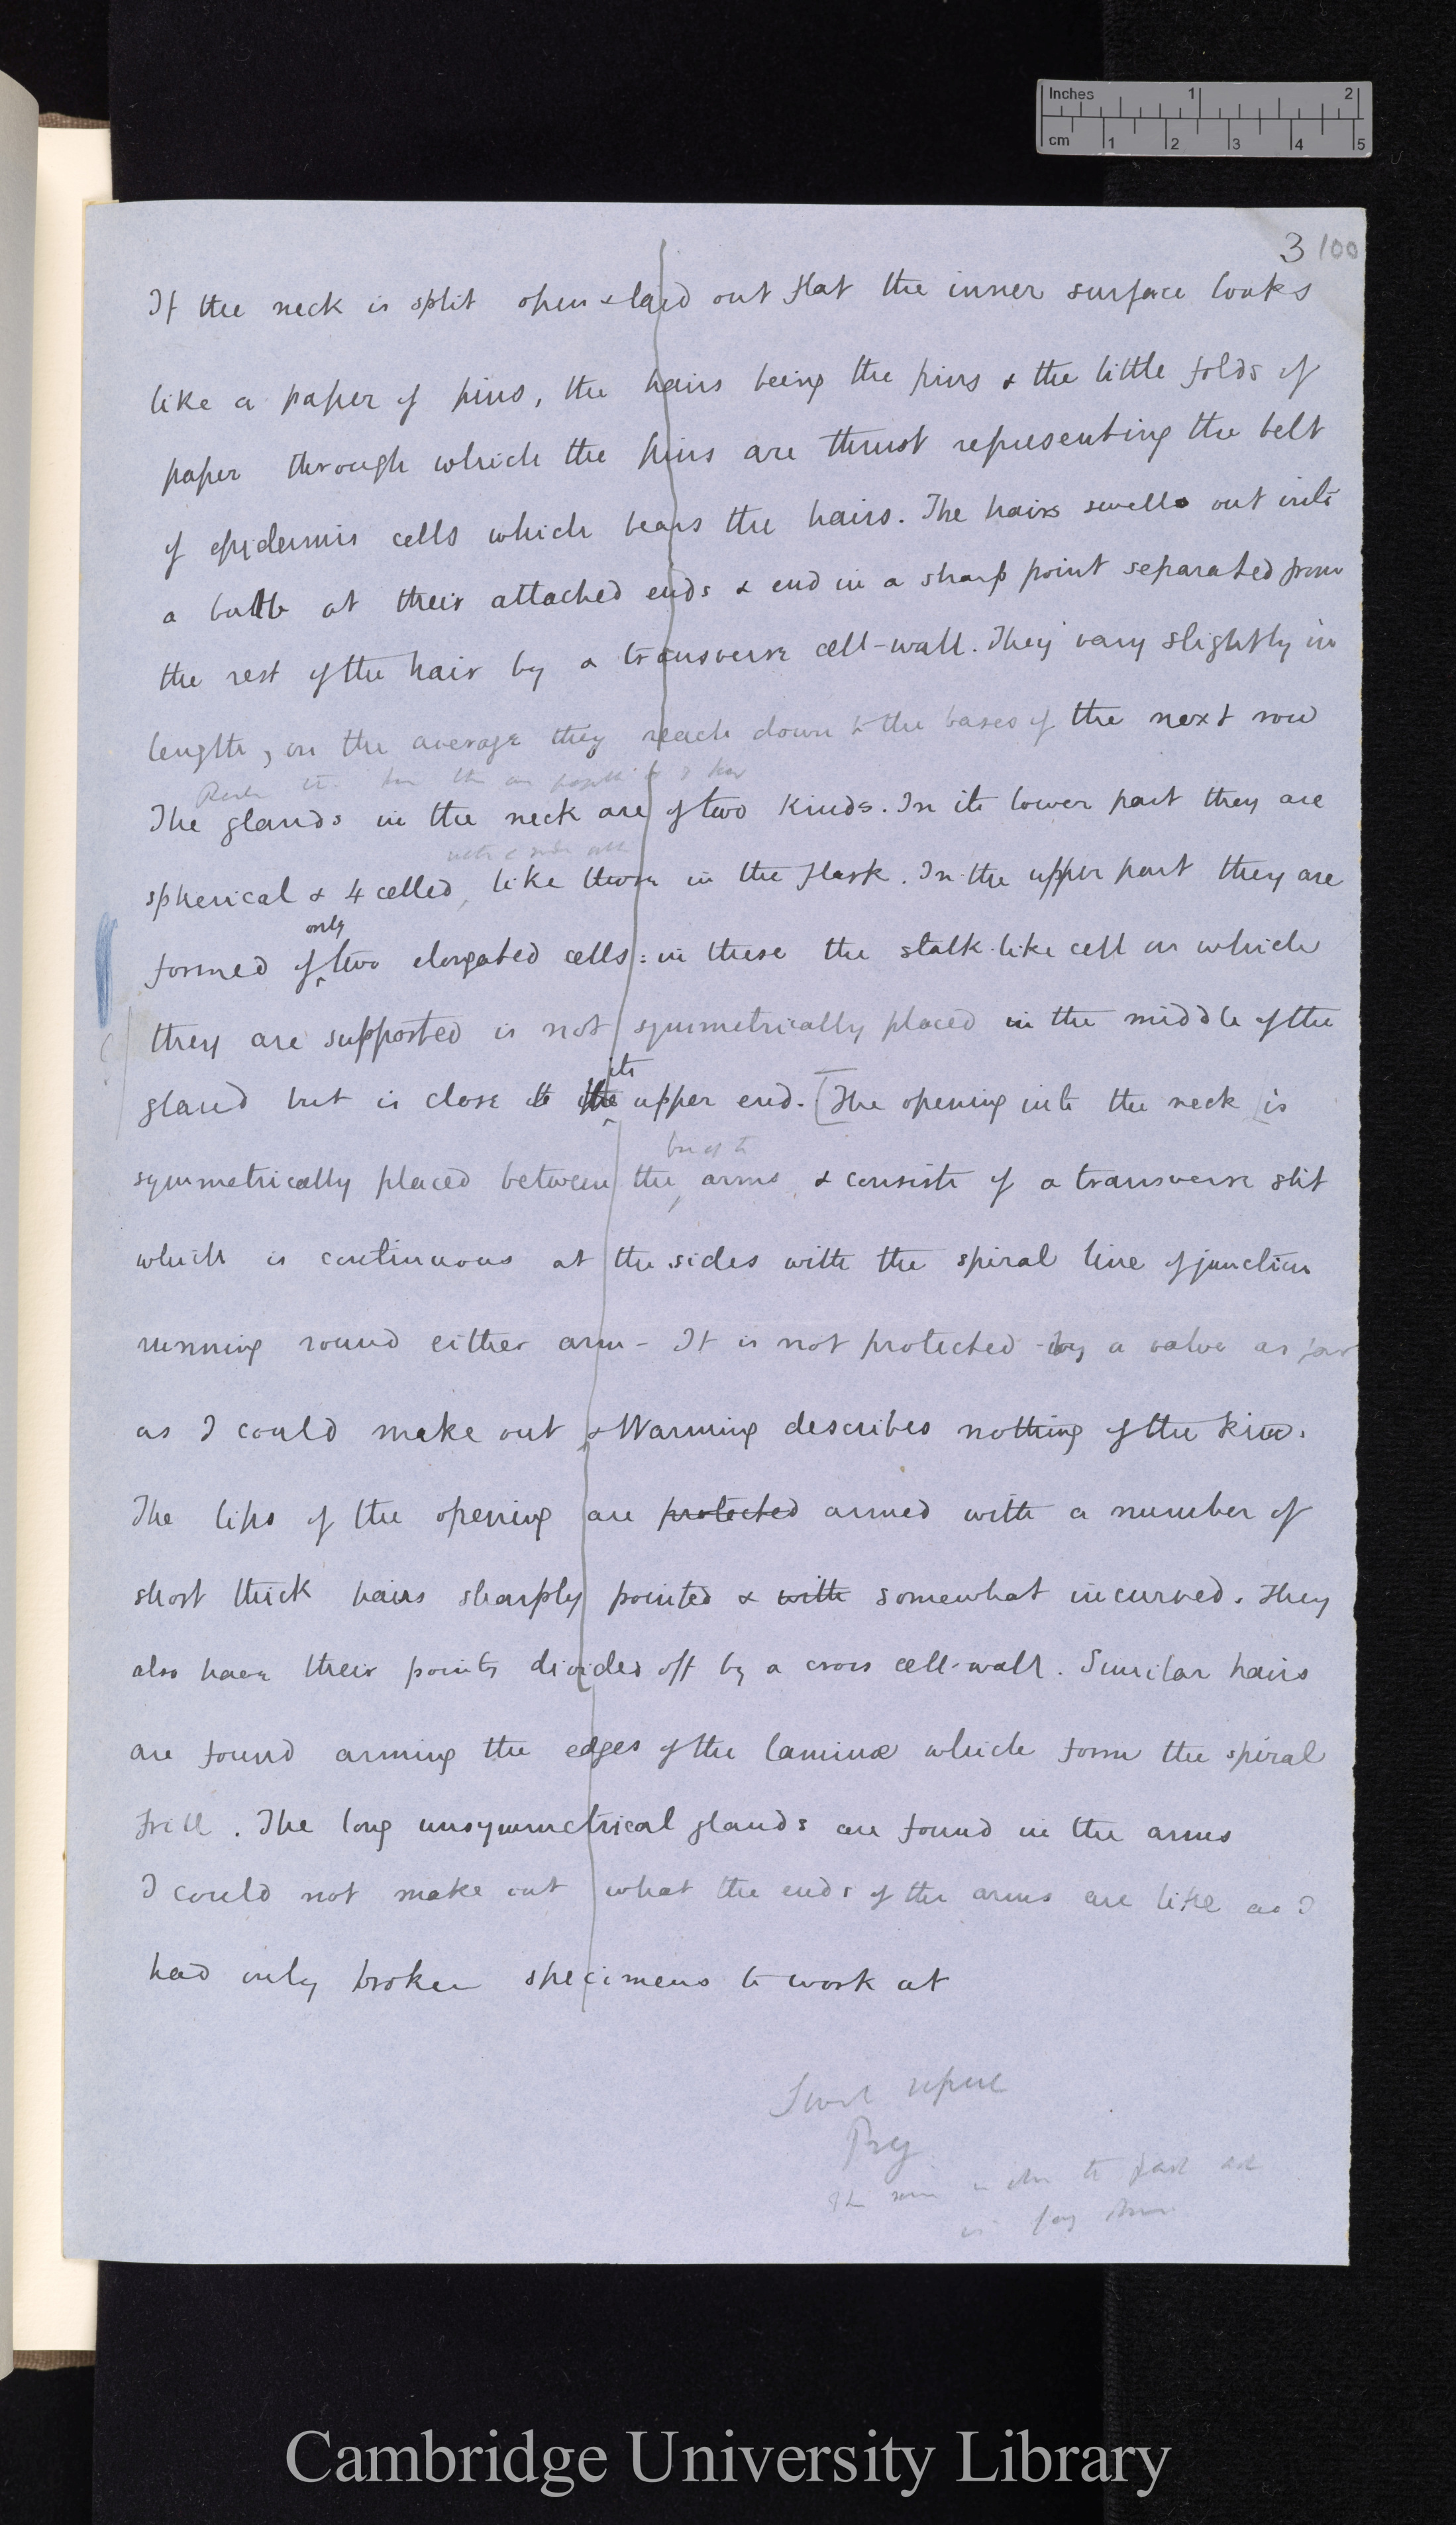 Inches 1 2
cm 1 2 3 4 5
3 100
If the neck is split open & laid out flat the inner surface looks
like a paper of pins, the hairs being the pins & the little folds of
paper through which the pins are thrust representing the belt
of epidermis cells which bears the hairs. The hairs swell out into
a bulb at their attached ends & end in a sharp point separated from
the rest of the hair by a transverse cell-wall. They vary slightly in
length, on the average they reach down to the bases of the next row
The glands in the neck are of two kinds. In its lower part they are
spherical & 4 celled, like those in the flask. In the upper part they are
only
formed of two elongated cells: in these the stalk-like cell on which
they are supported is not symmetrically placed in the middle of the
its
gland but is close to the upper end. [The opening into the neck is
symmetrically placed between the arms, & consists of a transverse slit
which is continuous at the sides with the spiral line of junction
running round either arm - It is not protected by a valve as far
as I could make out & Warming describes nothing of the kind.
The lips of the opening are protected armed with a number of
short thick hairs sharply pointed & with somewhat incurved. They
also have their points divided off by a cross cell-wall. Similar hairs
are found arming the edges of the laminæ which form the spiral
frill. The long unsymmetrical glands are found in the arms
I could not make out what the ends of the arms are like as I
had only broken specimens to work at
Cambridge University Library